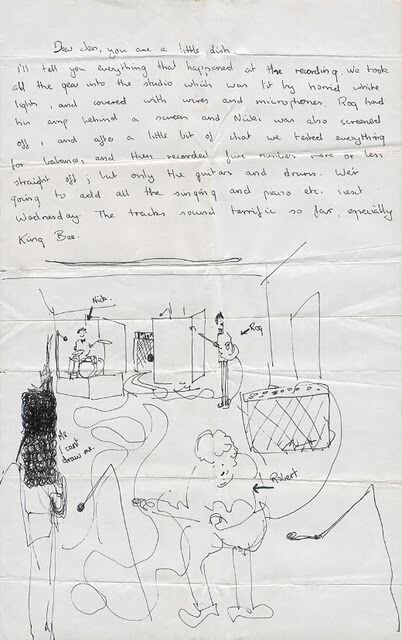 Dear Jen, you are a little dish,
I'll tell you everything that happened at the recording. We took
all the gear into the studio which was lit by horrid white
lights, and covered with wires and microphones. Rog had
his amp behind a screen and Nicki was also screened
off, and after a little bit of chat we tested everything
for balance, and then recorded five numbers more or less
straight off; but only the guitars and drums. We're
going to add all the singing and piano etc. next
Wednesday. The tracks sound terrific so far, especially
King Bee.
Nicki
Rog
Me
can't
draw me.
Robert